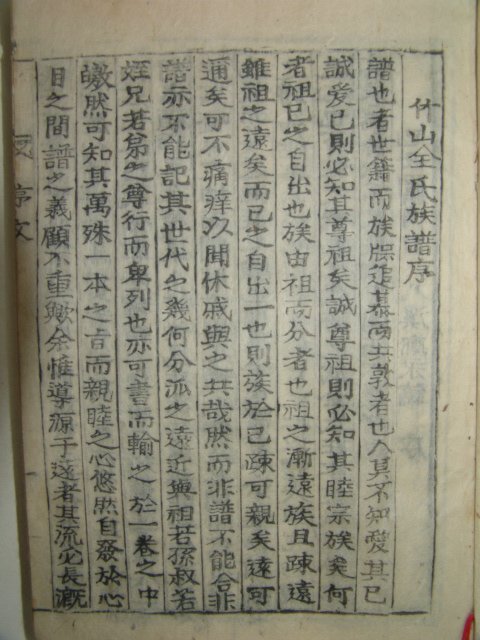 竹山全氏族譜序
譜也者世籍而族牒追慕而共敦者也人莫不知愛其已
誠愛已則必知其尊祖矣誠尊祖則必知其睦宗族矣何
者祖已之自出也族由祖而分者也祖之漸遠族且疎遠
雖祖之遠矣而已之自出一也則族於已疎可親矣遠可
邇矣可不痛痒以聞休戚與之共哉然而非譜不能合非
譜亦不能記其世代之幾何分派之遠近與祖若孫叔若
姪兄若弟之尊行而卑列也亦可書而輸之於一卷之中
皦然可知其萬殊一本之旨而親睦之心悠然自發於心
目之間譜之義顧不重歟余惟導源于遠者其流必長漑
序文